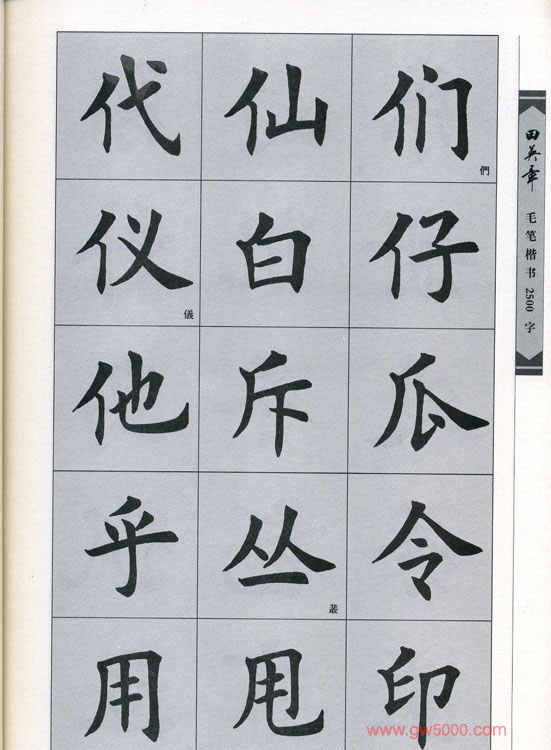 代 仙 们
們
仪 白 仔
儀
他 斥 瓜
乎 丛 令
叢
用 甩 印
田英章
毛笔楷书2500字
www.gw5000.com